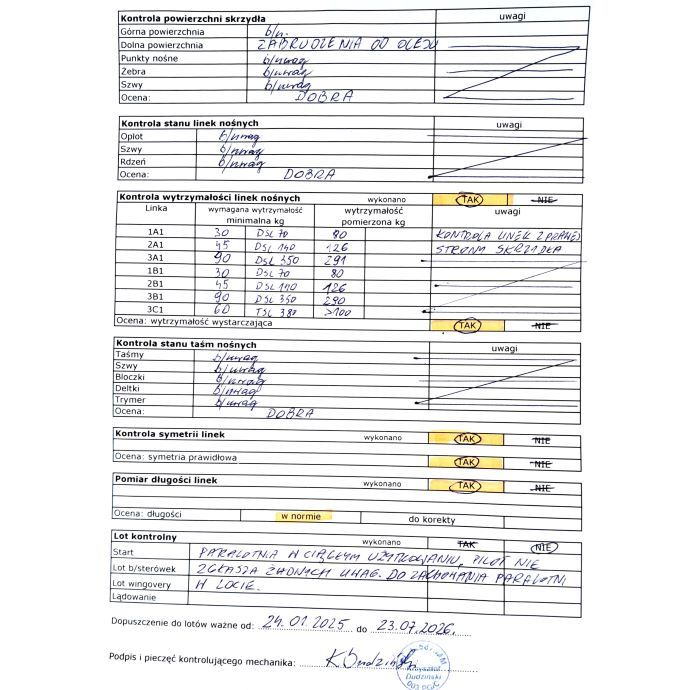 Kontrola powierzchni skrzydła uwagi
Górna powierzchnia b/u.
Dolna powierzchnia ZABRUDZENIA OD OLEJU
Punkty nośne b/uwag
Żebra b/uwag
Szwy b/uwag
Ocena: DOBRA
Kontrola stanu linek nośnych uwagi
Oplot b/uwag
Szwy b/uwag
Rdzeń b/uwag
Ocena: DOBRA
Kontrola wytrzymałości linek nośnych wykonano TAK NIE
Linka wymagana wytrzymałość minimalna kg wytrzymałość pomierzona kg uwagi
1A1 30 DSL 70 80 KONTROLA LINEK Z PRAWEJ
2A1 45 DSL 140 126 STRONY SKRZYDŁA
3A1 90 DSL 350 291
1B1 30 DSL 70 80
2B1 45 DSL 140 126
3B1 90 DSL 350 290
3C1 60 TSL 380 >100
Ocena: wytrzymałość wystarczająca TAK NIE
Kontrola stanu taśm nośnych uwagi
Taśmy b/uwag
Szwy b/uwag
Bloczki b/uwag
Deltki b/uwag
Trymer b/uwag
Ocena: DOBRA
Kontrola symetrii linek wykonano TAK NIE
Ocena: symetria prawidłowa TAK NIE
Pomiar długości linek wykonano TAK NIE
Ocena: długości w normie do korekty
Lot kontrolny wykonano TAK NIE
Start PARALOTNIA W CIĄGŁYM UŻYTKOWANIU, PILOT NIE
Lot b/sterówek ZGŁASZA ŻADNYCH UWAG. DO ZACHOWANIA PARALOTNI
Lot wingovery W LOCIE.
Lądowanie
Dopuszczenie do lotów ważne od: 24.01 2025 do 23.07.2026.
Podpis i pieczęć kontrolującego mechanika: K Dudziński
Krzysztof
Dudziński